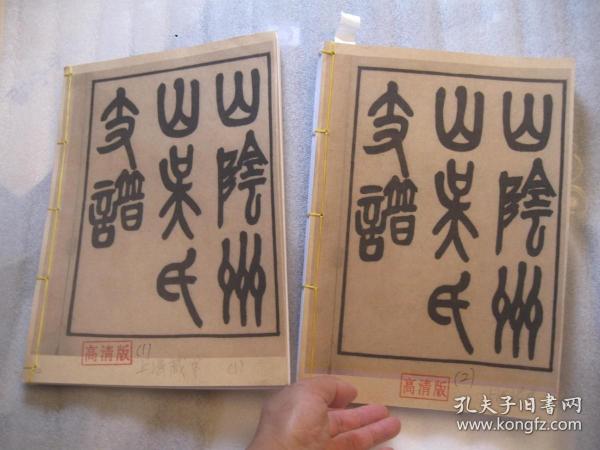 山陰州
山吳氏
支譜
高清版
(1)
上海藏本
(1)
山陰州
山吳氏
支譜
高清版
(2)
孔夫子旧书网
kongfz.com